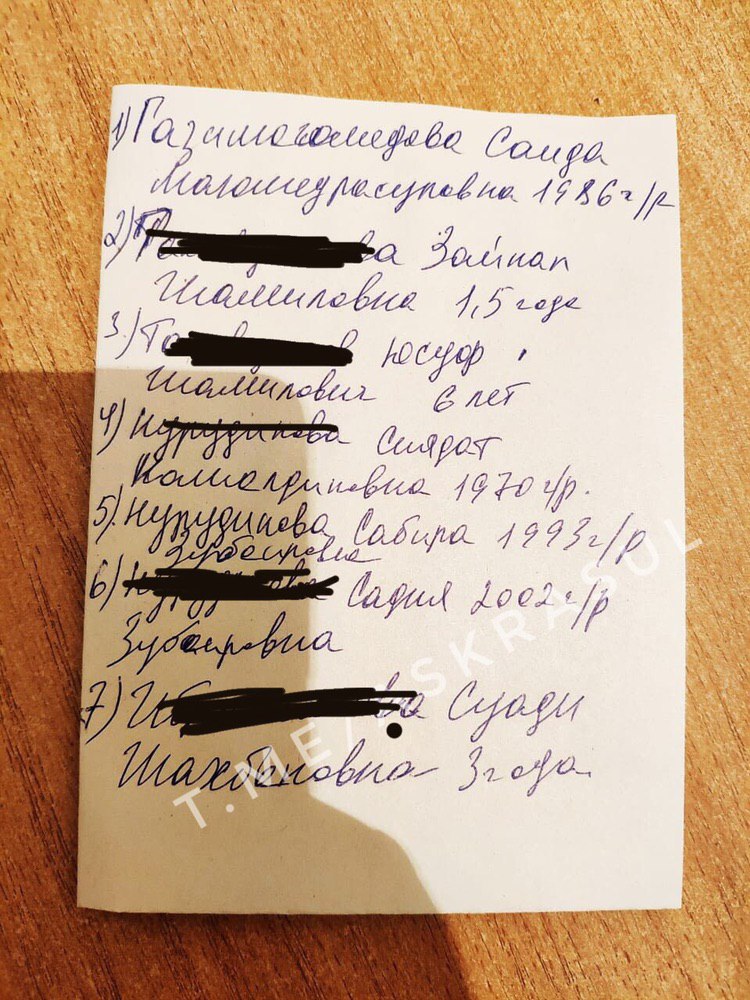 1) Газимагомедова Саида
Магомедрасуловна 1986 г/р
2) а Зайнап
Шамиловна 1,5 года
3) Юсуф
Шамилович 6 лет
4) Нурудинова Сиядат
Камалдиновна 1970 г/р.
5) Нурудинова Сабира 1993 г/р
Зубаировна
6) Садия 2002 г/р
Зубаировна
7) ва Суади
Шахбановна 3 года
T.ME/ASKRASUL